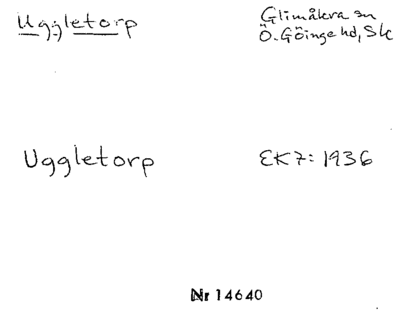 Uggletorp
Glimåkra sn
Ö. Göinge hd, Sk
Uggletorp
EK7: 1936
Nr 14640